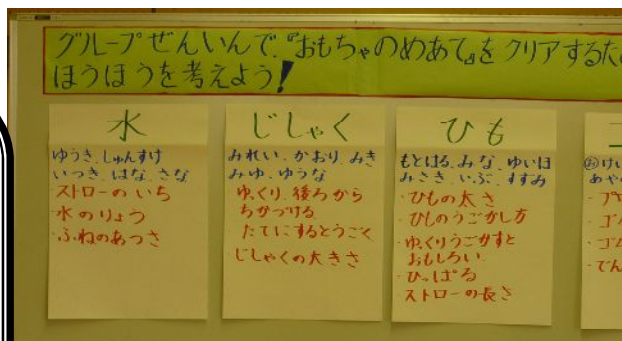 グループぜんいんで『おもちゃのめあて』をクリアするた
ほうほうを考えよう!
水
ゆうき、しゅんすけ
いつき、はな、さな
・ストローのいち
・水のりょう
・ふねのあつさ
じしゃく
みれい、かおり、みき
みゆ、ゆうな
・ゆっくり、後ろから
ちかづける
たてにするとうごく
・じしゃくの大きさ
ひも
もとはる、みな、ゆいほ
みさき、いぶ、すすみ
・ひもの太さ
・ひものうごかし方
・ゆっくりうごかすと
おもしろい
・ひっぱる
・ストローの長さ
あやの
・ゴ
・ゴム
・でん